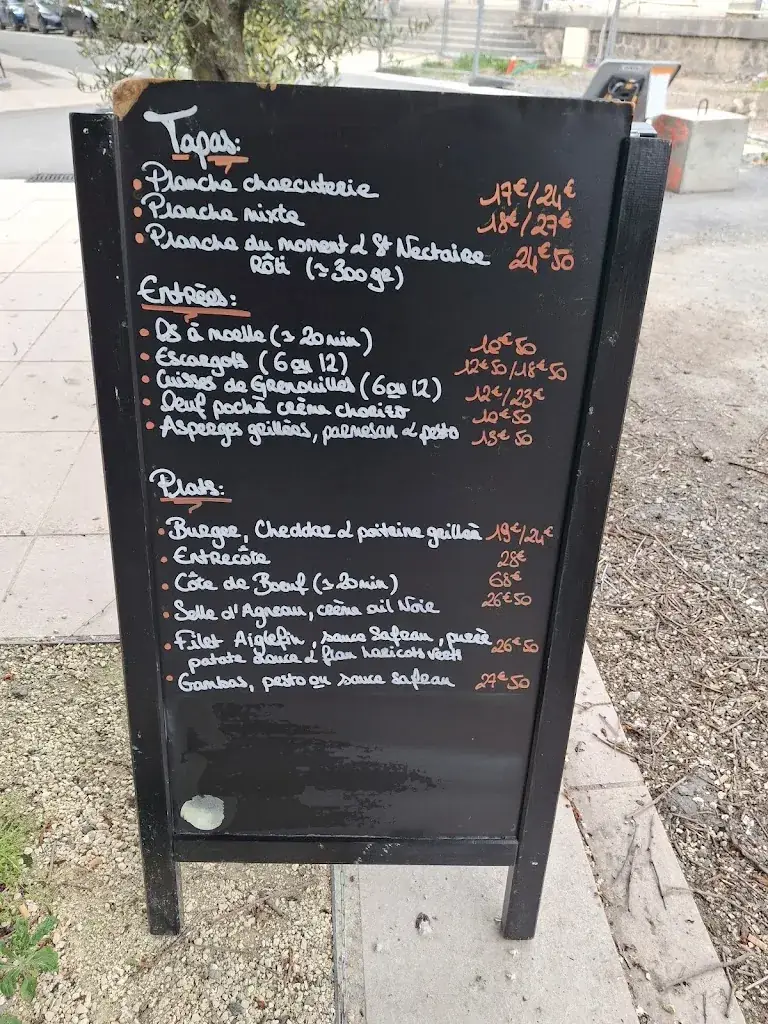 Tapas:
Planche charcuterie 17€/24€
Planche mixte 18€/27€
Planche du moment & St Nectaire 24€50
Rôti (≃300gr)
Entrées:
Os à moelle (≃ 20min) 10€50
Escargots (6 ou 12) 12€50/18€50
Cuisses de Grenouilles (6 ou 12) 12€/23€
Oeuf poché crème chorizo 10€50
Asperges grillées, parmesan & pesto 13€50
Plats:
Burger, Cheddar & poitrine grillée 19€/24€
Entrecôte 28€
Côte de Boeuf (≃20min) 68€
Selle d'Agneau, crème ail Noir 26€50
Filet Aiglefin, sauce Safran, purée 26€50
patate douce & flan haricots verts
Gambas, pesto ou sauce safran 27€50